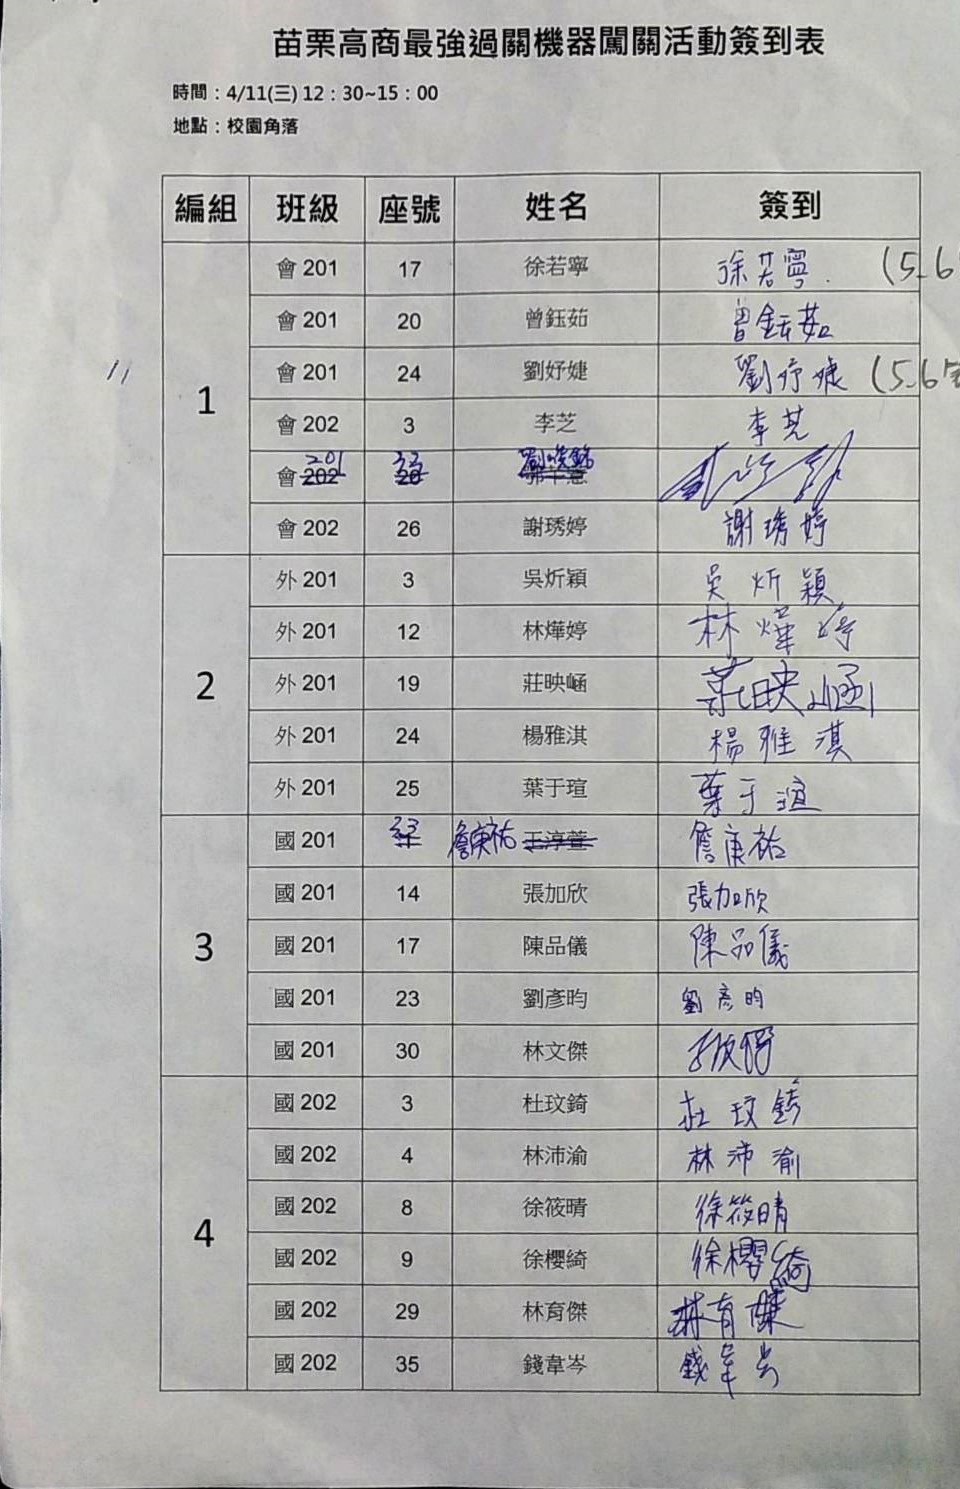 苗栗高商最強過關機器闖關活動簽到表
時間：4/11(三) 12：30~15：00
地點：校園角落
編組 班級 座號 姓名 簽到
1
會 201 17 徐若寧 徐若寧. (5.6
會 201 20 曾鈺茹 曾鈺茹
11 會 201 24 劉妤婕 劉妤婕 (5.6
會 202 3 李芝 李芝
會 202 201 20 33
會 202 26 謝琇婷 謝琇婷
2
外 201 3 吳炘穎 吳炘穎
外 201 12 林燁婷 林燁婷
外 201 19 莊映崡 莊映崡
外 201 24 楊雅淇 楊雅淇
外 201 25 葉于瑄 葉于瑄
3
國 201 33 詹庚祐 王淳萱 詹庚祐
國 201 14 張加欣 張加欣
國 201 17 陳品儀 陳品儀
國 201 23 劉彥昀 劉彥昀
國 201 30 林文傑
4
國 202 3 杜玟錡 杜玟錡
國 202 4 林沛渝 林沛渝
國 202 8 徐筱晴 徐筱晴
國 202 9 徐櫻綺 徐櫻綺
國 202 29 林育傑 林育傑
國 202 35 錢韋岑 錢韋岑